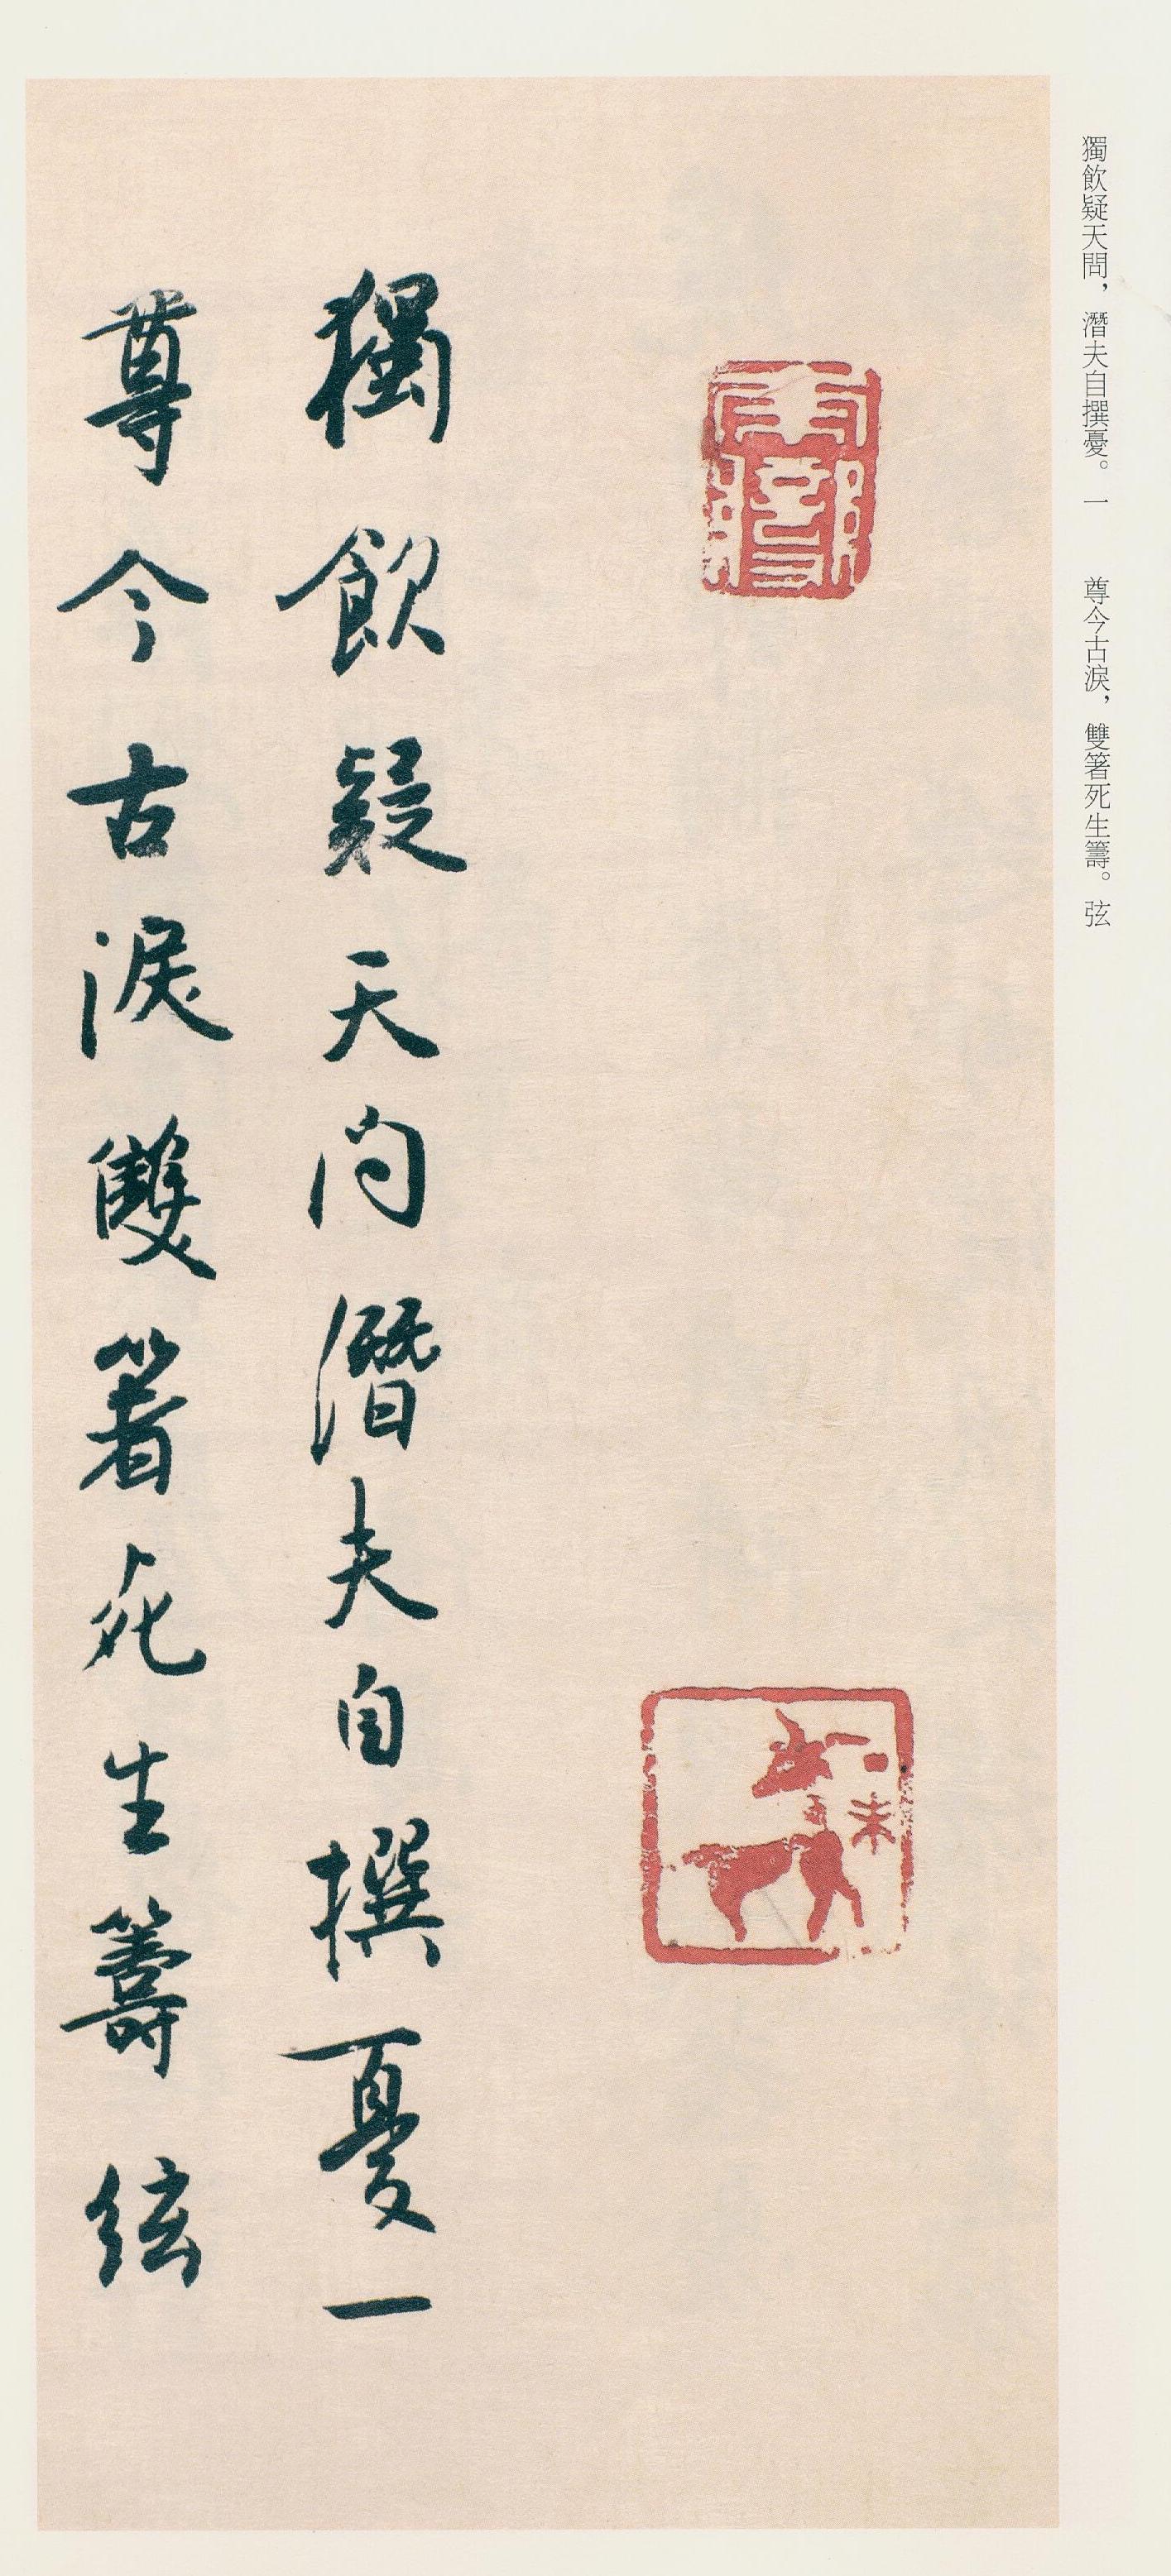 獨飲疑天問，潛夫自撰憂。一　尊今古淚，雙箸死生籌。弦
未
獨飲疑天问潛夫自撰憂一
尊今古淚雙箸死生籌弦